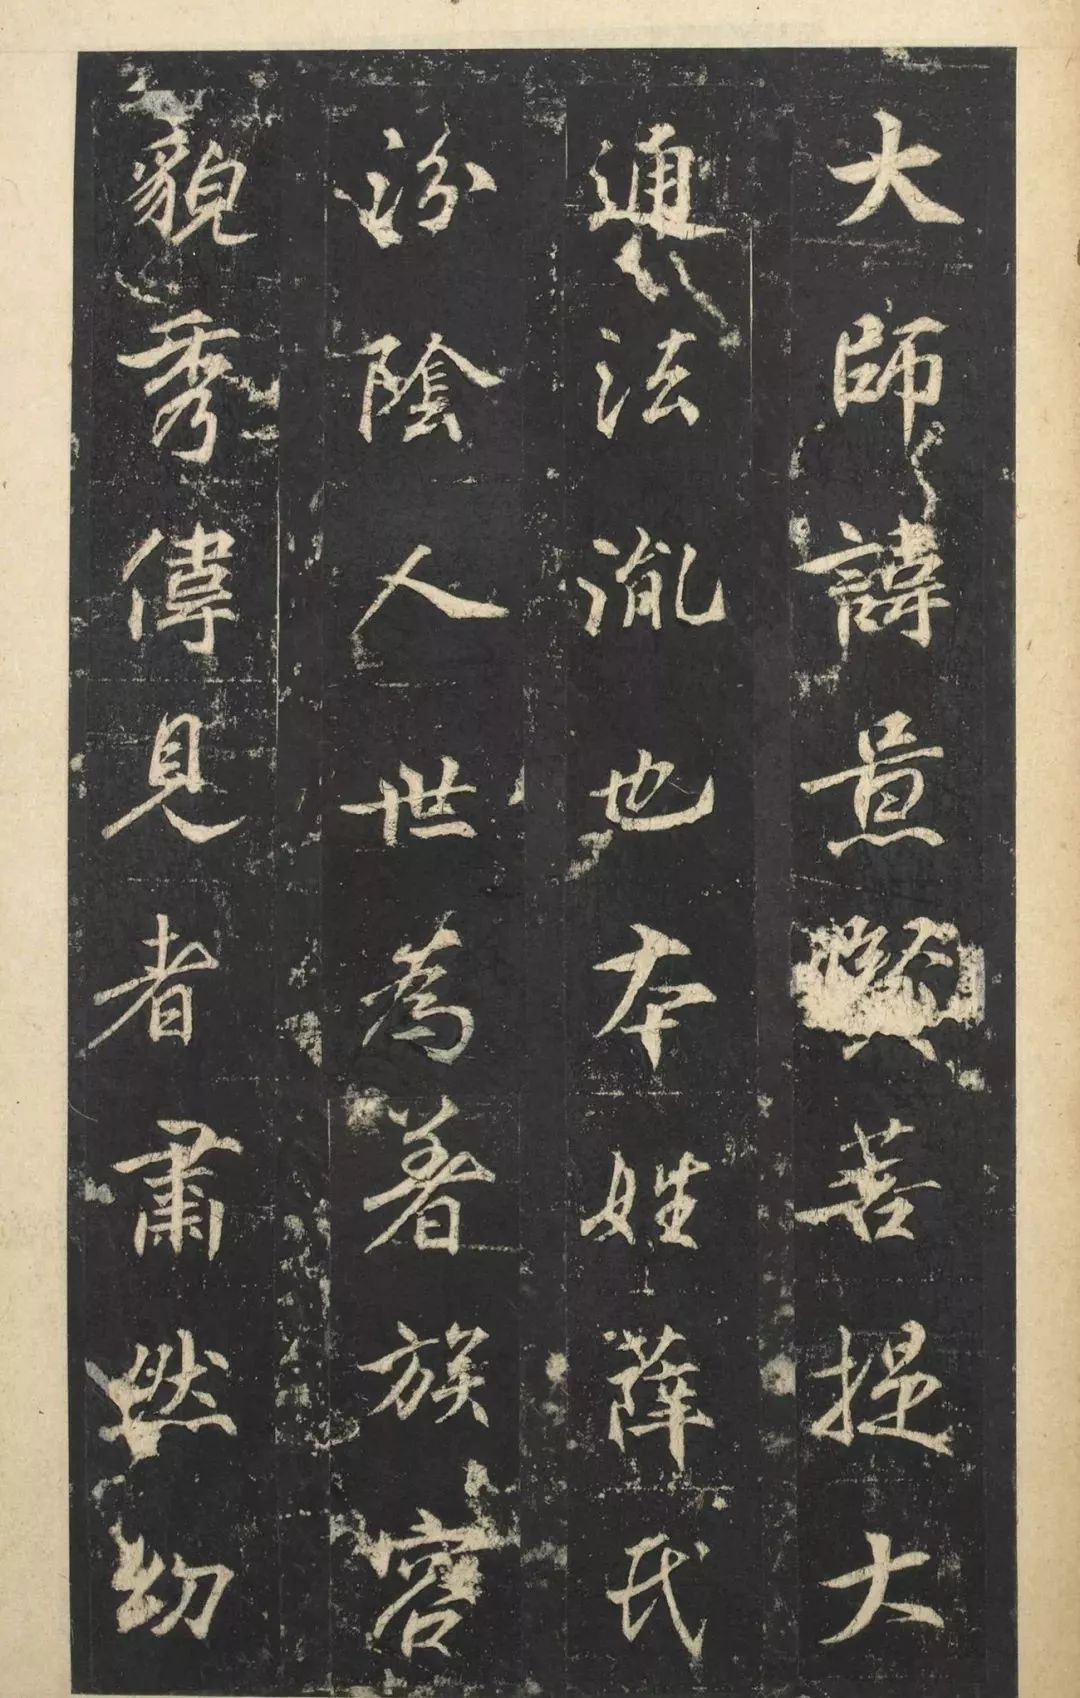 大師諱景賢菩提大
通法胤也本姓薛氏
汾陰人世為著族容
貌秀偉見者肅然幼